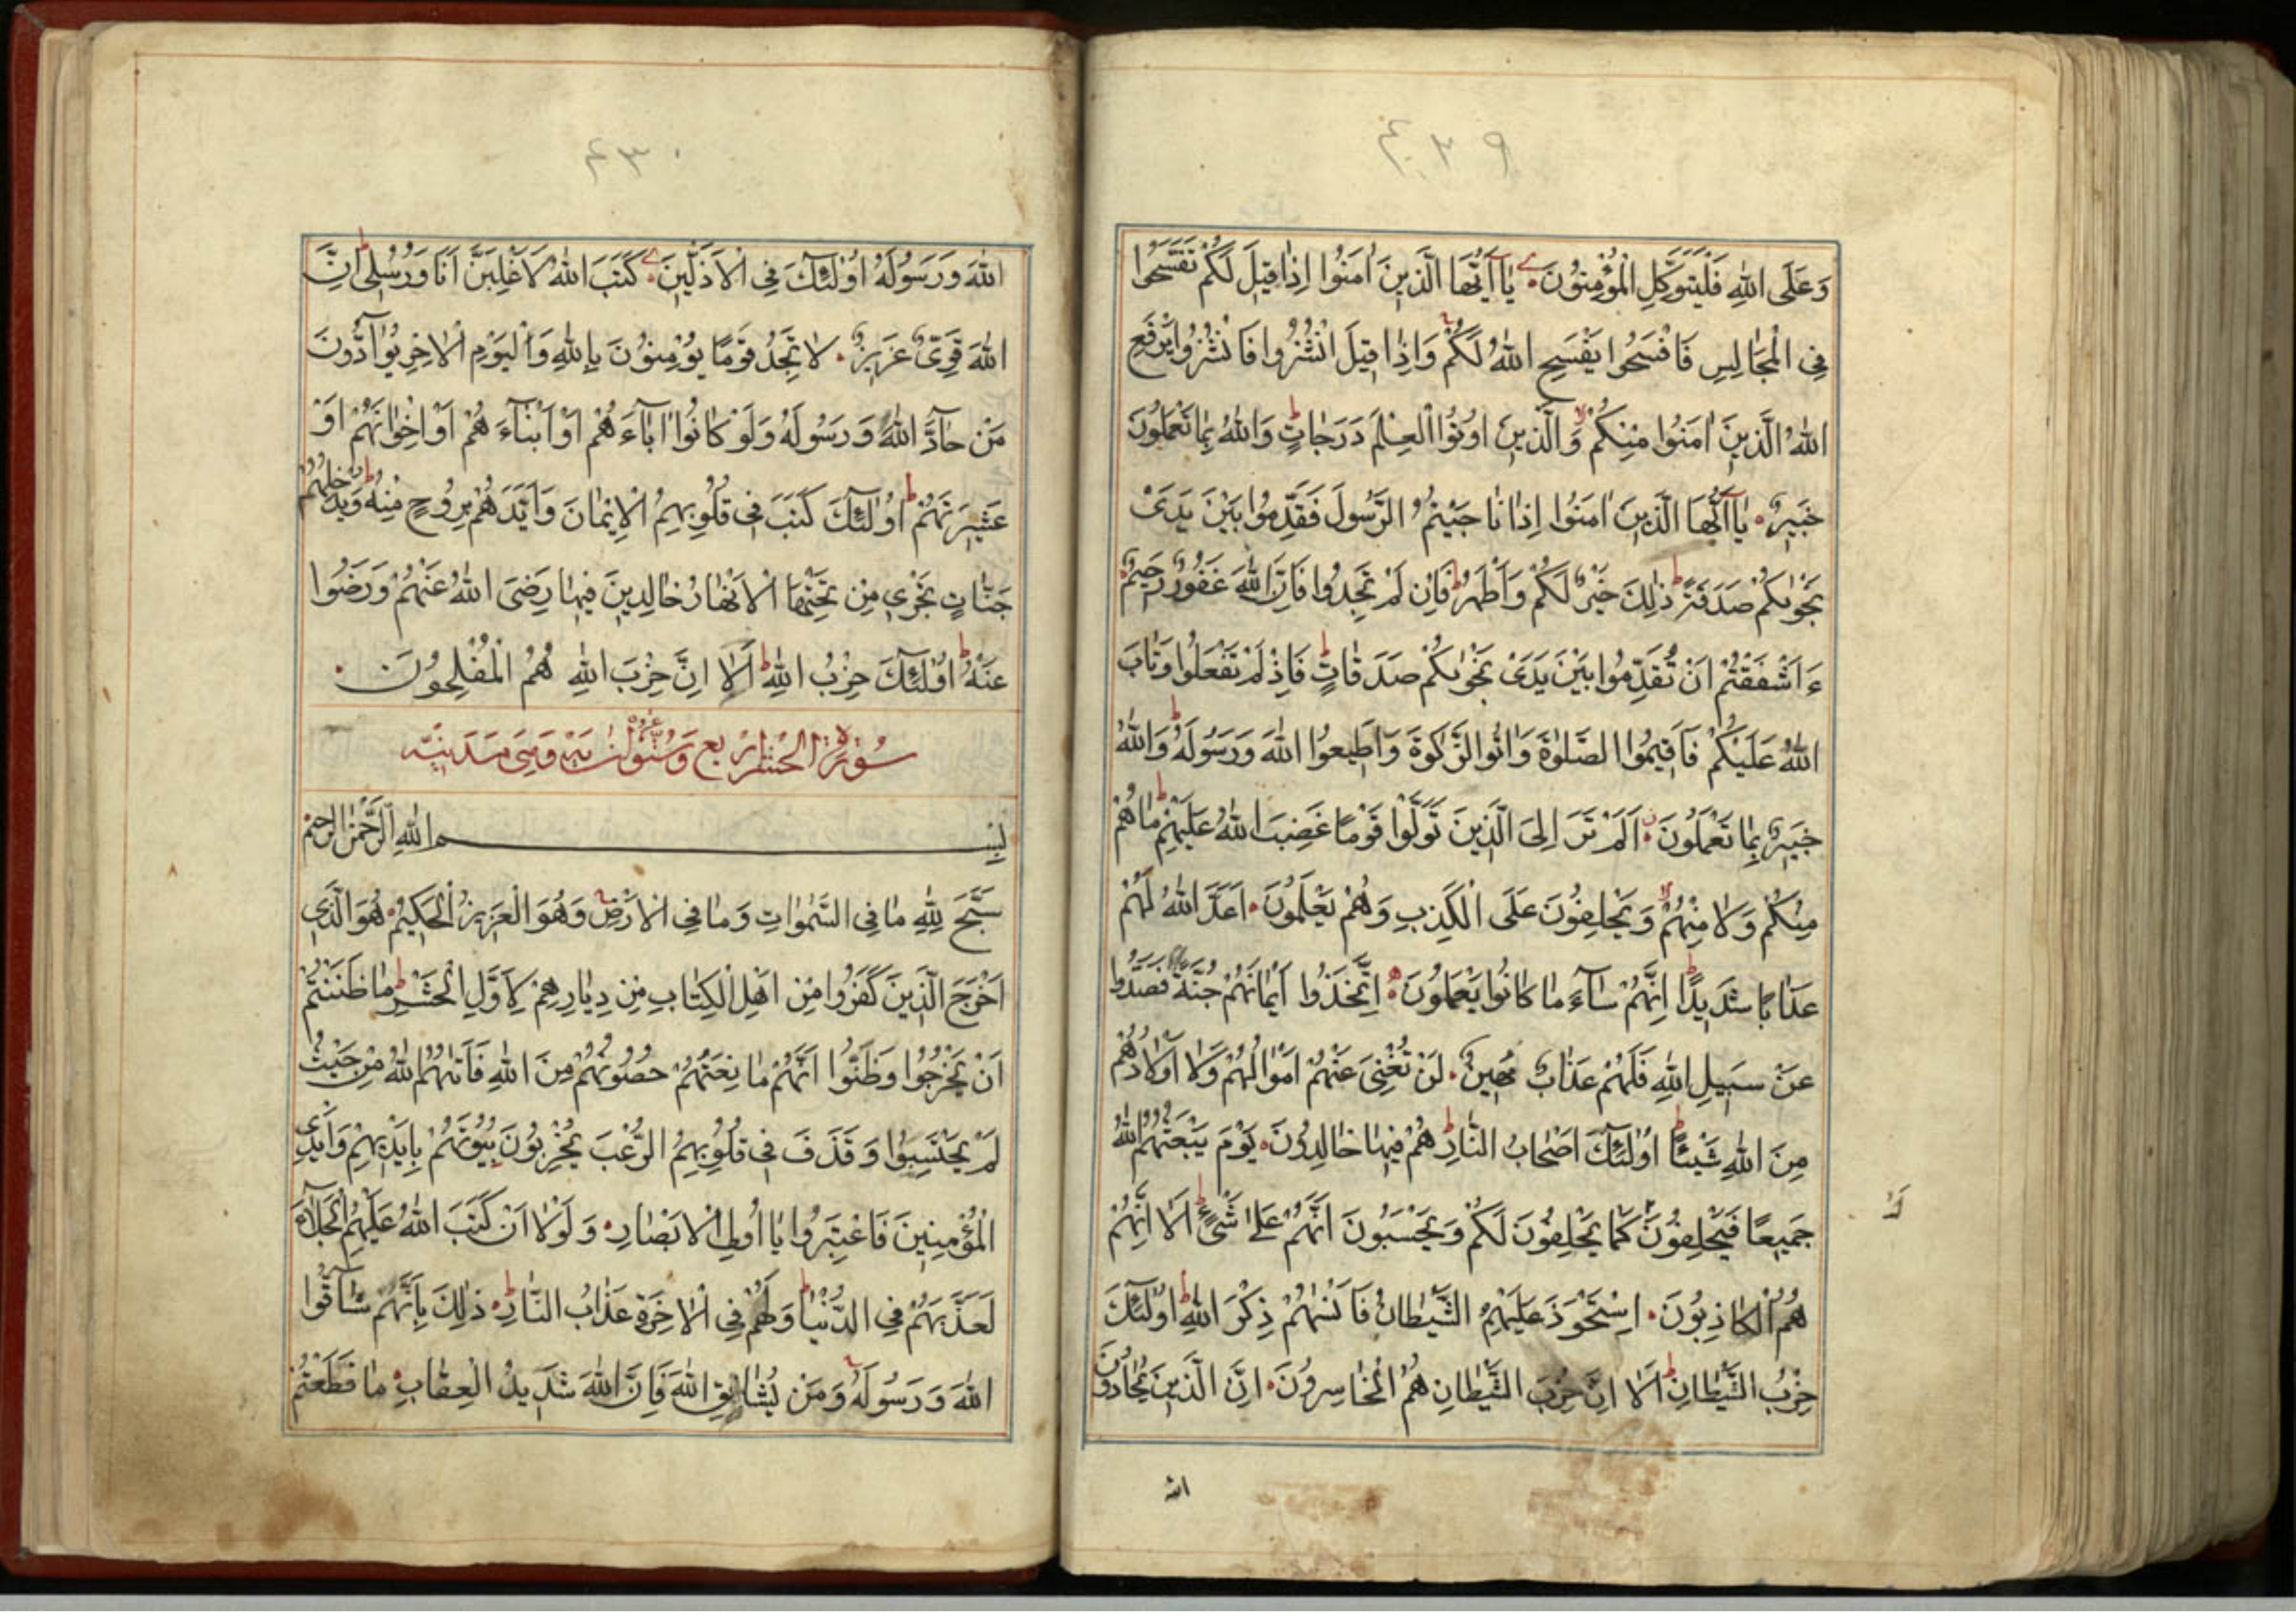 ٤٢٩
وَعَلَى اللهِ فَلْيَتَوَكَّلِ الْمُؤْمِنُونَ يَاأَيُّهَا الَّذِينَ اٰمَنُوا اِذَا قِيلَ لَكُمْ تَفَسَّحُوا
فِي الْمَجَالِسِ فَافْسَحُوا يَفْسَحِ اللهُ لَكُمْ وَاِذَا قِيلَ انْشُزُوا فَانْشُزُوا يَرْفَعِ
اللهُ الَّذِينَ اٰمَنُوا مِنْكُمْ وَالَّذِينَ اُوتُوا الْعِلْمَ دَرَجَاتٍ وَاللهُ بِمَا تَعْمَلُونَ
خَبِيرٌ يَاأَيُّهَا الَّذِينَ اٰمَنُوا اِذَا نَاجَيْتُمُ الرَّسُولَ فَقَدِّمُوا بَيْنَ يَدَىْ
نَجْوٰىكُمْ صَدَقَةً ذٰلِكَ خَيْرٌ لَكُمْ وَاَطْهَرُ فَاِنْ لَمْ تَجِدُوا فَاِنَّ اللهَ غَفُورٌ رَحِيمٌ
ءَاَشْفَقْتُمْ اَنْ تُقَدِّمُوا بَيْنَ يَدَىْ نَجْوٰىكُمْ صَدَقَاتٍ فَاِذْ لَمْ تَفْعَلُوا وَتَابَ
اللهُ عَلَيْكُمْ فَاَقِيمُوا الصَّلٰوةَ وَاٰتُوا الزَّكٰوةَ وَاَطِيعُوا اللهَ وَرَسُولَهُ وَاللهُ
خَبِيرٌ بِمَا تَعْمَلُونَ اَلَمْ تَرَ اِلَى الَّذِينَ تَوَلَّوْا قَوْمًا غَضِبَ اللهُ عَلَيْهِمْ مَا هُمْ
مِنْكُمْ وَلَا مِنْهُمْ وَيَحْلِفُونَ عَلَى الْكَذِبِ وَهُمْ يَعْلَمُونَ اَعَدَّ اللهُ لَهُمْ
عَذَابًا شَدِيدًا اِنَّهُمْ سَآءَ مَا كَانُوا يَعْمَلُونَ اِتَّخَذُوا اَيْمَانَهُمْ جُنَّةً فَصَدُّوا
عَنْ سَبِيلِ اللهِ فَلَهُمْ عَذَابٌ مُهِينٌ لَنْ تُغْنِىَ عَنْهُمْ اَمْوَالُهُمْ وَلَا اَوْلَادُهُمْ
مِنَ اللهِ شَيْئًا اُولٰئِكَ اَصْحَابُ النَّارِ هُمْ فِيهَا خَالِدُونَ يَوْمَ يَبْعَثُهُمُ اللهُ
جَمِيعًا فَيَحْلِفُونَ كَمَا يَحْلِفُونَ لَكُمْ وَيَحْسَبُونَ اَنَّهُمْ عَلٰى شَىْءٍ اَلَا اِنَّهُمْ
هُمُ الْكَاذِبُونَ اِسْتَحْوَذَ عَلَيْهِمُ الشَّيْطَانُ فَاَنْسٰيهُمْ ذِكْرَ اللهِ اُولٰئِكَ
حِزْبُ الشَّيْطَانِ اَلَا اِنَّ حِزْبَ الشَّيْطَانِ هُمُ الْخَاسِرُونَ اِنَّ الَّذِينَ يُحَادُّونَ
الله
٤٣٠
اللهَ وَرَسُولَهُ اُولٰئِكَ فِي الْاَذَلِّينَ كَتَبَ اللهُ لَاَغْلِبَنَّ اَنَا وَرُسُلِى اِنَّ
اللهَ قَوِىٌّ عَزِيزٌ لَا تَجِدُ قَوْمًا يُؤْمِنُونَ بِاللهِ وَالْيَوْمِ الْاٰخِرِ يُوَآدُّونَ
مَنْ حَآدَّ اللهَ وَرَسُولَهُ وَلَوْ كَانُوا اٰبَآءَهُمْ اَوْ اَبْنَآءَهُمْ اَوْ اِخْوَانَهُمْ اَوْ
عَشِيرَتَهُمْ اُولٰئِكَ كَتَبَ فِي قُلُوبِهِمُ الْاِيمَانَ وَاَيَّدَهُمْ بِرُوحٍ مِنْهُ وَيُدْخِلُهُمْ
جَنَّاتٍ تَجْرِي مِنْ تَحْتِهَا الْاَنْهَارُ خَالِدِينَ فِيهَا رَضِىَ اللهُ عَنْهُمْ وَرَضُوا
عَنْهُ اُولٰئِكَ حِزْبُ اللهِ اَلَا اِنَّ حِزْبَ اللهِ هُمُ الْمُفْلِحُونَ
سُورَةُ الْحَشْرِ وَهِىَ مَدَنِيَّة
بِسْمِ اللهِ الرَّحْمٰنِ الرَّحِيمِ
سَبَّحَ لِلّٰهِ مَا فِي السَّمٰوَاتِ وَمَا فِي الْاَرْضِ وَهُوَ الْعَزِيزُ الْحَكِيمُ هُوَ الَّذِي
اَخْرَجَ الَّذِينَ كَفَرُوا مِنْ اَهْلِ الْكِتَابِ مِنْ دِيَارِهِمْ لِاَوَّلِ الْحَشْرِ مَا ظَنَنْتُمْ
اَنْ يَخْرُجُوا وَظَنُّوا اَنَّهُمْ مَانِعَتُهُمْ حُصُونُهُمْ مِنَ اللهِ فَاَتٰيهُمُ اللهُ مِنْ حَيْثُ
لَمْ يَحْتَسِبُوا وَقَذَفَ فِي قُلُوبِهِمُ الرُّعْبَ يُخْرِبُونَ بُيُوتَهُمْ بِاَيْدِيهِمْ وَاَيْدِي
الْمُؤْمِنِينَ فَاعْتَبِرُوا يَا اُولِي الْاَبْصَارِ وَلَوْلَا اَنْ كَتَبَ اللهُ عَلَيْهِمُ الْجَلَآءَ
لَعَذَّبَهُمْ فِي الدُّنْيَا وَلَهُمْ فِي الْاٰخِرَةِ عَذَابُ النَّارِ ذٰلِكَ بِاَنَّهُمْ شَآقُّوا
اللهَ وَرَسُولَهُ وَمَنْ يُشَاقِّ اللهَ فَاِنَّ اللهَ شَدِيدُ الْعِقَابِ مَا قَطَعْتُمْ